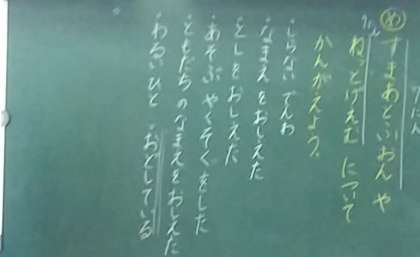 め すまあとふおんや
ねっとげえむ について
かんがえよう。
・しらないでんわ
・なまえをおしえた
・としをおしえた
・あそぶやくそくをした
・ともだちのなまえをおしえた
・わるいひと・おどしている